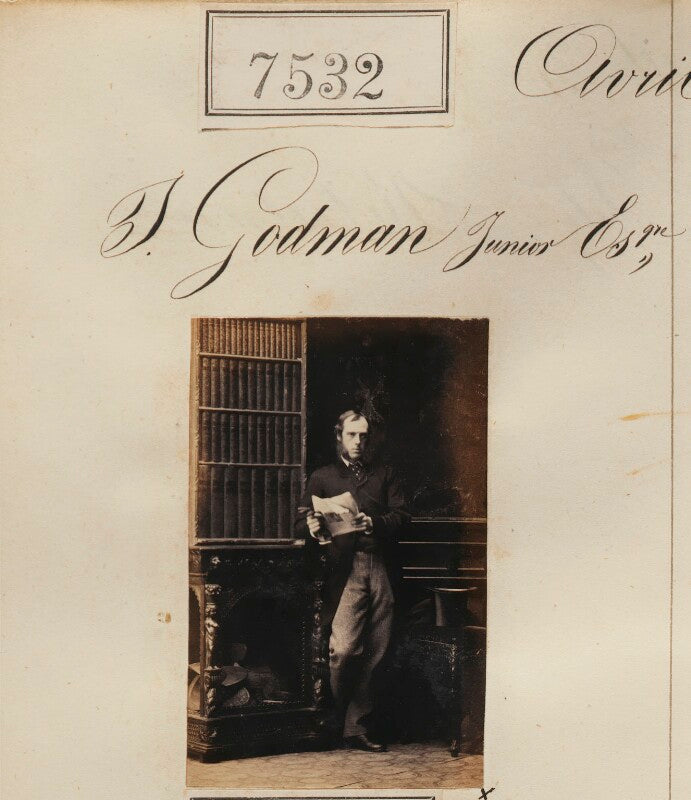 7532
Avril
J. Godman Junior Esqre
x